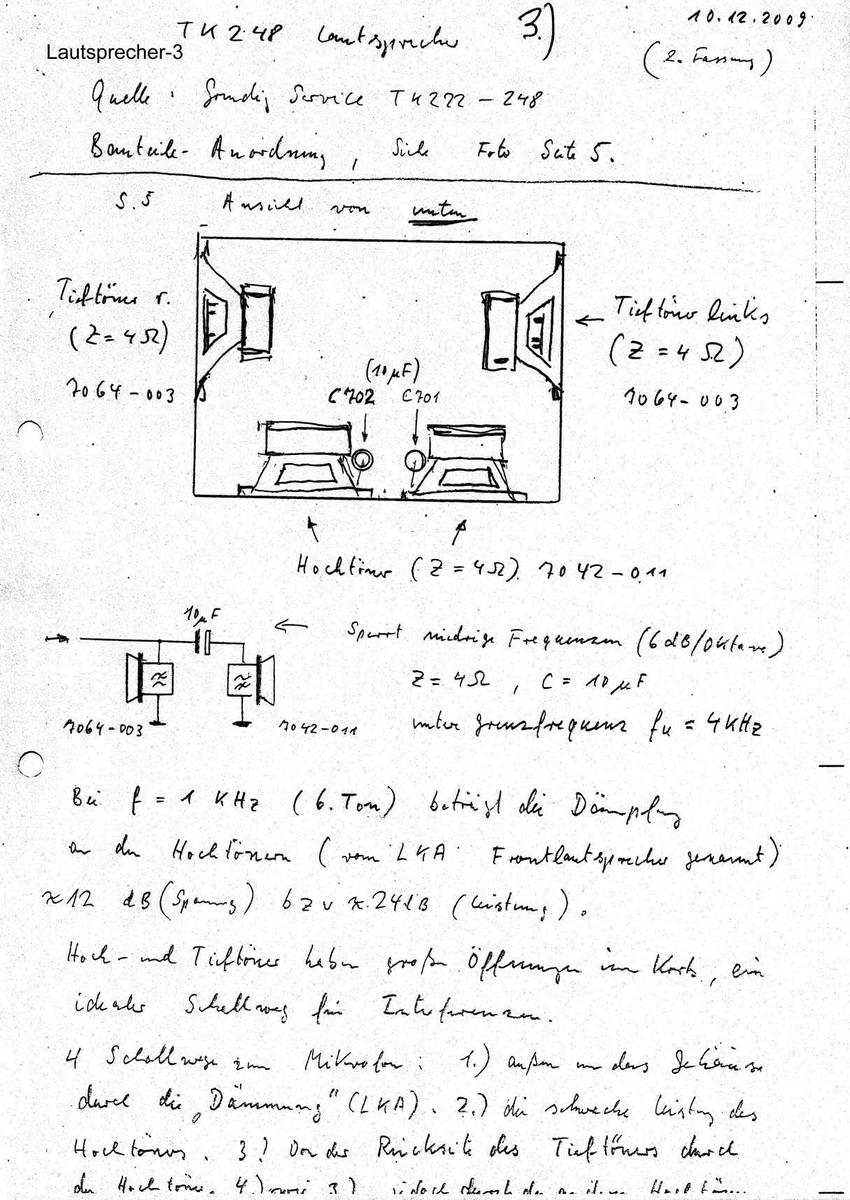 TK 248 Lautsprecher 3.)
10.12.2009
Lautsprecher-3
(2. Fassung)
Quelle: Grundig Service TK222-248
Bauteile-Anordnung, Siehe Foto Seite 5.
S.5 Ansicht von unten
Tieftöner r.
(Z=4Ω)
7064-003
Tieftöner links
(Z=4Ω)
7064-003
(10µF)
C702 C701
Hochtöner (Z=4Ω) 7042-011
10µF
7064-003 7042-011
Sperrt niedrige Frequenzen (6dB/Oktave)
Z=4Ω, C=10µF
untere Grenzfrequenz fu = 4KHz
Bei f = 1 KHz (6. Ton) beträgt die Dämpfung
an den Hochtönern (vom LKA Frontlautsprecher genannt)
≈12 dB (Spannung) bzw ≈.24dB (Leistung).
Hoch- und Tieftöner haben große Öffnungen im Korb, ein
idealer Schallweg für Interferenzen.
4 Schallwege zum Mikrofon: 1.) außen um das Gehäuse
durch die „Dämmung" (LKA). 2.) die schwache Leistung des
Hochtöners. 3) Von der Rückseite des Tieftöners durch
den Hochtöner. 4.) wie 3.) jedoch durch den anderen Hochtöner